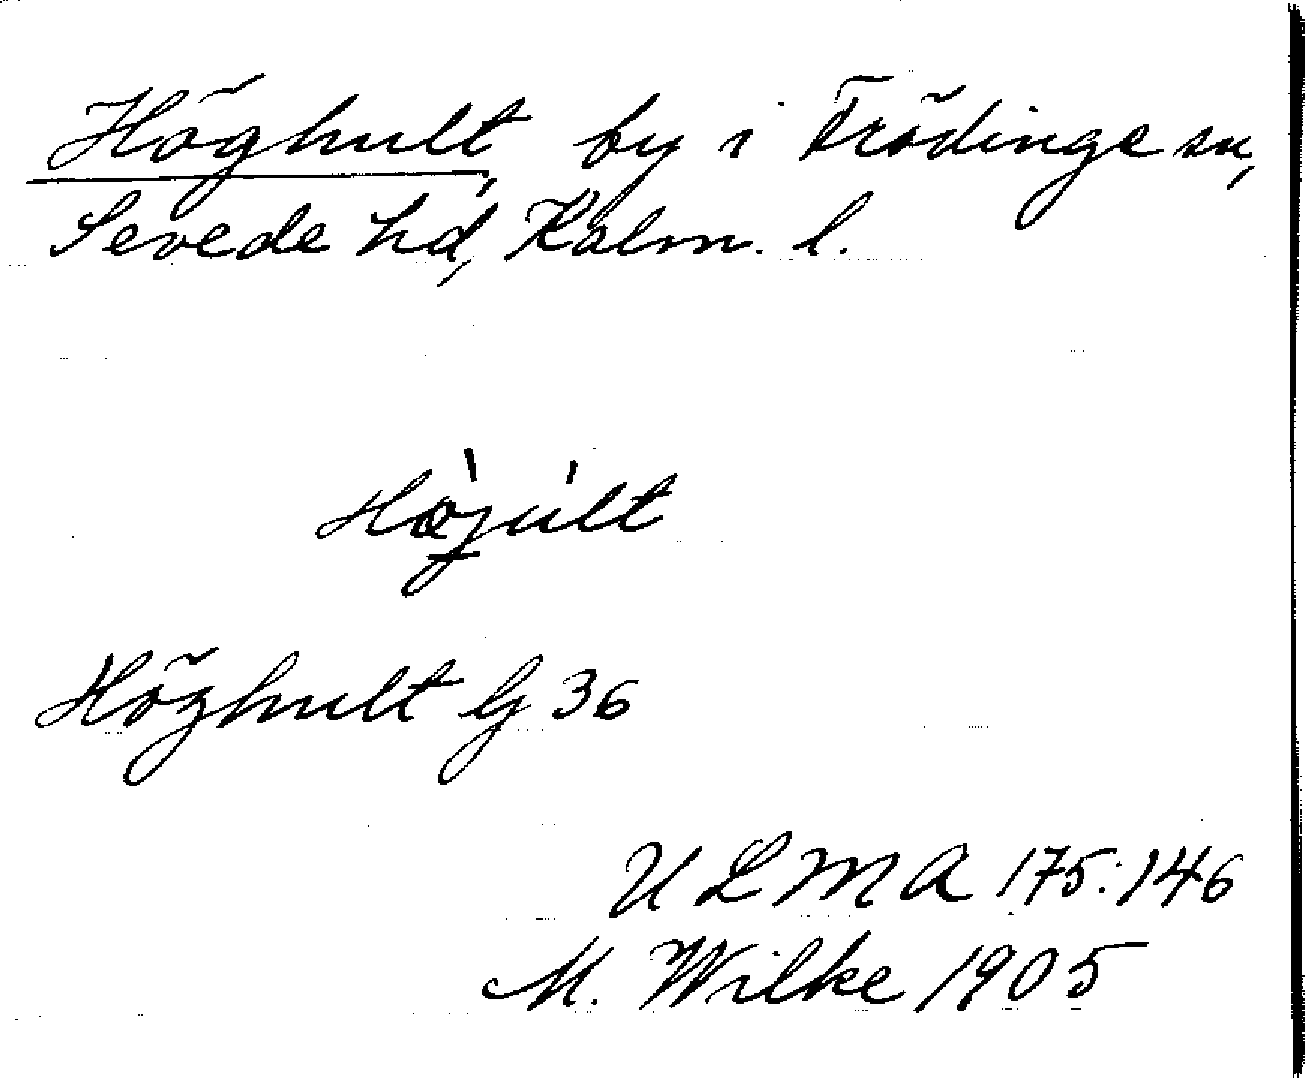 Höghult, by i Frödinge sn,
Sevede hd, Kalm. l.
Hœ̀júlt
Höghult G 36
ULMA 175:146
M. Wilke 1905